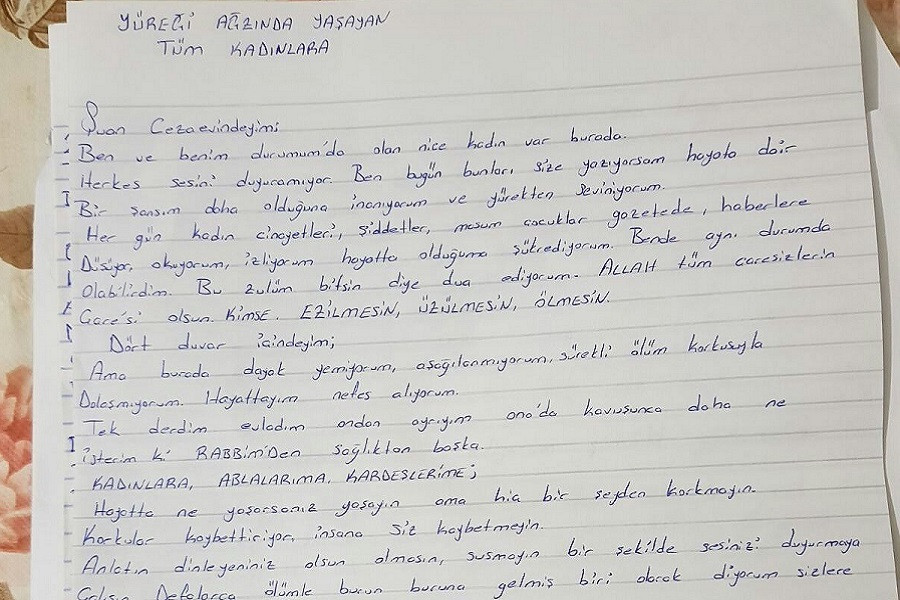 YÜREĞİ AĞZINDA YAŞAYAN
TÜM KADINLARA
Şuan Cezaevindeyim;
Ben ve benim durumum'da olan nice kadın var burada.
Herkes sesini duyuramıyor. Ben bugün bunları size yazıyorsam hayata dair
Bir şansım daha olduğuna inanıyorum ve yürekten seviniyorum.
Her gün kadın cinayetleri, şiddetler, masum çocuklar gazetede, haberlere
Düşüyor, okuyorum, izliyorum hayatta olduğuma şükrediyorum. Bende aynı durumda
Olabilirdim. Bu zulüm bitsin diye dua ediyorum. ALLAH tüm çaresizlerin
Çare'si olsun. Kimse. EZİLMESİN, ÜZÜLMESİN, ÖLMESİN.
Dört duvar içindeyim;
Ama burada dayak yemiyorum, aşağılanmıyorum, sürekli ölüm korkusuyla
Dolaşmıyorum. Hayattayım nefes alıyorum.
Tek derdim evladım ondan ayrıyım ona'da kavuşunca daha ne
isterim ki RABBİM'DEN sağlıktan başka.
KADINLARA, ABLALARIMA, KARDEŞLERİME;
Hayatta ne yaşarsanız yaşayın ama hiç bir şeyden korkmayın.
Korkular kaybettiriyor, insana siz kaybetmeyin.
Anlatın dinleyeniniz olsun olmasın, susmayın bir şekilde sesinizi duyurmaya
Çalışın Defalarca ölümle burun buruna gelmiş biri olarak diyorum sizlere